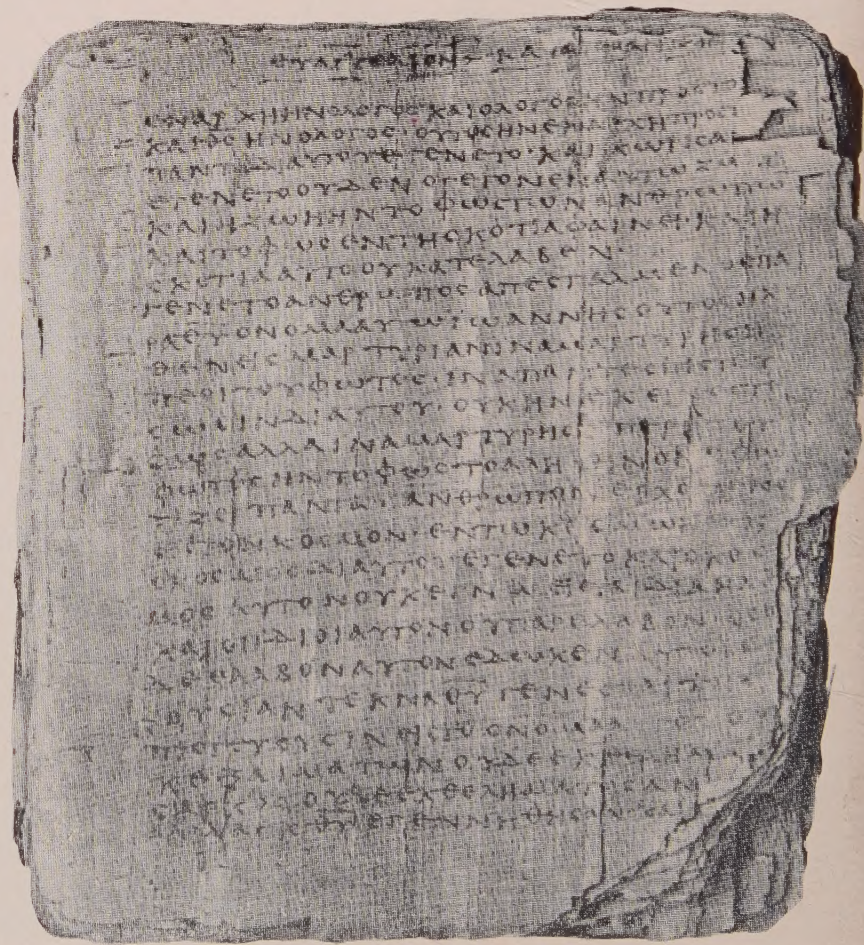 ΕΥΑΓΓΕΛΙΟΝ ΚΑΤΑ
ΕΝΑΡΧΗΗΝΟΛΟΓΟϹΚΑΙΟΛΟΓΟϹΗΝΠΡΟϹΤΟ
ΚΑΙΘϹΗΝΟΛΟΓΟϹ·ΟΥΤΟϹΗΝΕΝΑΡΧΗΠΡΟϹΤ
ΠΑΝΤΑΔΙΑΥΤΟΥΕΓΕΝΕΤΟ·ΚΑΙΧΩΡΙϹΑ
ΕΓΕΝΕΤΟΟΥΔΕΝΟΓΕΓΟΝΕΝΕΝΑΥΤΩΖΩΗ
ΚΑΙΗΖΩΗΗΝΤΟΦΩϹΤΩΝΑΝΘΡΩΠΩ
ΚΑΙΤΟΦΩϹΕΝΤΗϹΚΟΤΙΑΦΑΙΝΕΙ·ΚΑΙΗ
ϹΚΟΤΙΑΑΥΤΟΟΥΚΑΤΕΛΑΒΕΝ·
ΕΓΕΝΕΤΟΑΝΘΡΩΠΟϹΑΠΕϹΤΑΛΜΕΝΟϹΠΑ
ΡΑΘΥΟΝΟΜΑΑΥΤΩΙΩΑΝΝΗϹΟΥΤΟϹΗΛ
ΘΕΝΕΙϹΜΑΡΤΥΡΙΑΝΙΝΑΜΑΡΤΥΡΗϹΗ
ΠΕΡΙΤΟΥΦΩΤΟϹ·ΙΝΑΠΑΝΤΕϹΠΙϹΤΕΥ
ϹΩϹΙΝΔΙΑΥΤΟΥ·ΟΥΚΗΝΕΚΕΙΝΟϹΤΟ
ΦΩϹΑΛΛΑΙΝΑΜΑΡΤΥΡΗϹΗΠΕΡΙΤΟΥ
ΦΩΤΟϹΗΝΤΟΦΩϹΤΟΑΛΗΘΙΝΟΝΟΦΩ
ΤΙΖΕΙΠΑΝΤΑΑΝΘΡΩΠΟΝΕΡΧΟΜΕΝΟ
ΕΙϹΤΟΝΚΟϹΜΟΝ·ΕΝΤΩΚΟϹΜΩΗΝ
ΟΚΟϹΜΟϹΔΙΑΥΤΟΥΕΓΕΝΕΤΟΚΑΙΟΚΟϹ
ΜΟϹΑΥΤΟΝΟΥΚΕΓΝΩΕΙϹΤΑΙΔΙΑΗΛ
ΚΑΙΟΙΙΔΙΟΙΑΥΤΟΝΟΥΠΑΡΕΛΑΒΟΝ·ΟϹΟΙ
ΔΕΕΛΑΒΟΝΑΥΤΟΝΕΔΩΚΕΝΑΥΤΟΙϹΕ
ΞΟΥϹΙΑΝΤΕΚΝΑΘΥΓΕΝΕϹΘΑΙΤΟΙ
ΠΙϹΤΕΥΟΥϹΙΝΕΙϹΤΟΟΝΟΜΑΑΥΤΟΥ
ΟΥΚΕΞΑΙΜΑΤΩΝΟΥΔΕΕΚΘΕΛΗΜΑ
ϹΑΡΚΟϹΟΥΔΕΕΚΘΕΛΗΜΑΤΟϹΑΝ
ΔΡΟϹΑΛΛΕΚΘΥΕΓΕΝΝΗΘΗϹΑΝΚΑΙ